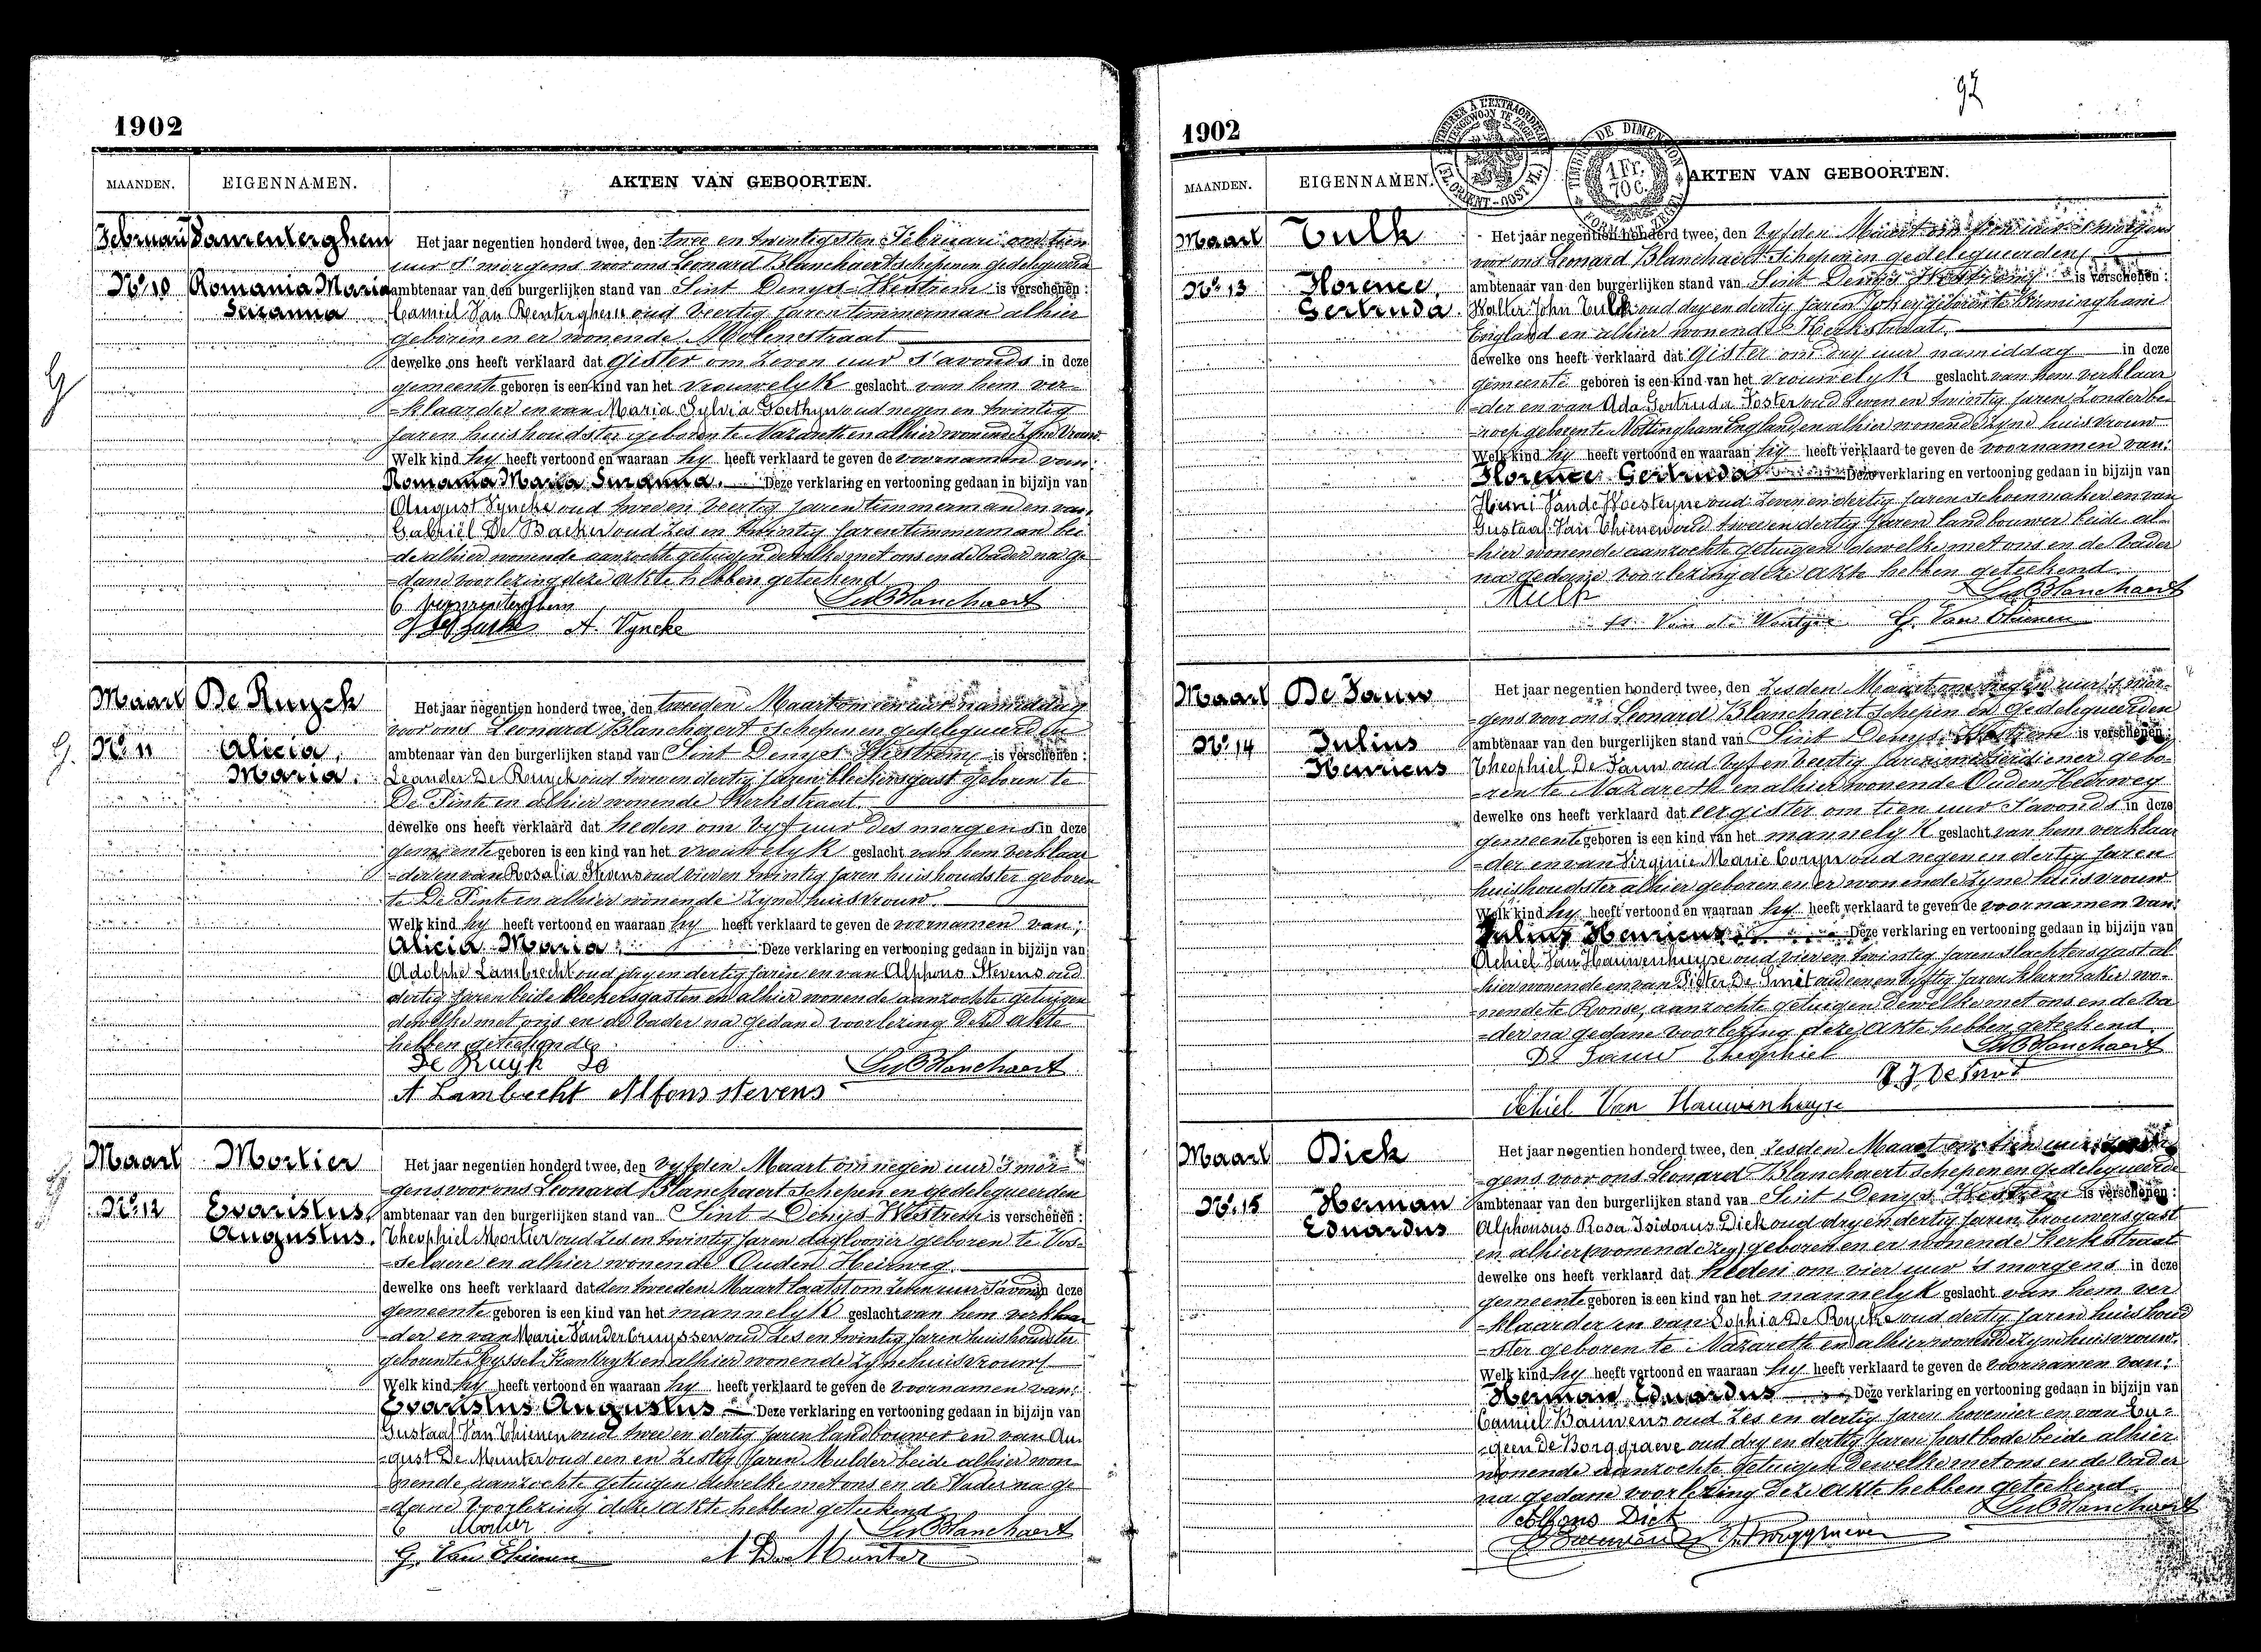 1902
MAANDEN. EIGENNAMEN. AKTEN VAN GEBOORTEN.
Februari Vanrenterghem
No 10 Romania Maria
Suzanna
Het jaar negentien honderd twee, den twee en twintigsten Februari om tien
uur s' morgens voor ons Leonard Blanchaert schepenen gedelegueerd
ambtenaar van den burgerlijken stand van Sint Denys Westrem is verschenen :
Camiel Van Renterghem oud veertig jaren timmerman alhier
geboren en er wonende Molenstraat
dewelke ons heeft verklaard dat gister om zeven uur s'avonds in deze
gemeente geboren is een kind van het vrouwelyk geslacht van hem ver-
-klaarder en van Maria Sylvia Goethyn oud negen en twintig
jaren huishoudster geboren te Nazareth en alhier wonende zyne vrouw
Welk kind hy heeft vertoond en waaraan hy heeft verklaard te geven de voornamen van:
Romania Maria Suzanna. Deze verklaring en vertooning gedaan in bijzijn van
August Vyncke oud twee en veertig jaren timmerman en van
Gabriël De Backer oud zes en twintig jaren timmerman bei
de alhier wonende aanzochte getuigen dewelke met ons en de vader na ge
-dane voorlezing deze akte hebben geteekend
C Vanrenterghem LBlanchaert
A. Vyncke
Maart De Ruyck
No 11 Alicia
Maria.
Het jaar negentien honderd twee, den tweeden Maart om een uur namiddag
voor ons Leonard Blanchaert schepen en gedelegueerden
ambtenaar van den burgerlijken stand van Sint Denys Westrem is verschenen :
Leander De Ruyck oud twee en dertig jaren bleekersgast geboren te
De Pinte en alhier wonende Kerkstraat.
dewelke ons heeft verklaard dat heden om vyf uur des morgens in deze
gemeente geboren is een kind van het vrouwelyk geslacht van hem verklaar
-der en van Rosalia Stevens oud vier en twintig jaren huishoudster geboren
te De Pinte en alhier wonende zyne huisvrouw.
Welk kind hy heeft vertoond en waaraan hy heeft verklaard te geven de voornamen van;
Alicia Maria. Deze verklaring en vertooning gedaan in bijzijn van
Adolphe Lambrecht oud dry en dertig jaren en van Alphons Stevens oud
dertig jaren beide bleekersgasten en alhier wonende aanzochte getuigen
dewelke met ons en de vader na gedane voorlezing deze akte
hebben geteekend
De Ruyk Le LBlanchaert
A Lambrecht Alfons stevens
Maart Mortier
No 12 Evaristus
Augustus.
Het jaar negentien honderd twee, den vyfden Maart om negen uur s'mor-
-gens voor ons Leonard Blanchaert schepen en gedelegueerden
ambtenaar van den burgerlijken stand van Sint Denys Westrem is verschenen :
Theophiel Mortier oud zes en twintig jaren daglooner geboren te Vos-
-selaere en alhier wonende Ouden Heirweg
dewelke ons heeft verklaard dat den tweeden Maart laatst om zeven uur s'avonds in deze
gemeente geboren is een kind van het mannelyk geslacht van hem verklaar
-der en van Marie Vanderbruyssen oud zes en twintig jaren huishoudster
geboren te Ryssel Frankryk en alhier wonende zyne huisvrouw
Welk kind hy heeft vertoond en waaraan hy heeft verklaard te geven de voornamen van:
Evaristus Augustus Deze verklaring en vertooning gedaan in bijzijn van
Gustaaf Van Thienen oud twee en dertig jaren landbouwer en van Au-
-gust De Munter oud een en zestig jaren Mulder beide alhier wo-
nende aanzochte getuigen dewelke met ons en de Vader na ge
-dane voorlezing deze akte hebben geteekend
Mortier LBlanchaert
G. Van Thienen A De Munter
92
1902
TIMBRE DE DIMENSION
1 Fr. 70 c.
MAANDEN. EIGENNAMEN. AKTEN VAN GEBOORTEN.
Maart Tulk
No 13 Florence
Gertruda.
Het jaar negentien honderd twee, den vyfden Maart om tien uur s'morgens
voor ons Leonard Blanchaert Schepen en gedelegueerden
ambtenaar van den burgerlijken stand van Sint Denys Westrem is verschenen :
Walter John Tulk oud dry en dertig jaren Jokey geboren te Birmingham
England en alhier wonende Kerkstraat.
dewelke ons heeft verklaard dat gister om dry uur namiddag in deze
gemeente geboren is een kind van het vrouwelyk geslacht van hem verklaar
-der en van Ada Gertruda Foster oud zeven en twintig jaren zonder be-
-roep geboren te Nottingham England, en alhier wonende zyne huisvrouw
Welk kind hy heeft vertoond en waaraan hy heeft verklaard te geven de voornamen van:
Florence Gertruda Deze verklaring en vertooning gedaan in bijzijn van
Henri Vande Woesteyne oud zeven en dertig jaren schoenmaker en van
Gustaaf Van Thienen oud twee en dertig jaren landbouwer beide al-
-hier wonende aanzochte getuigen dewelke met ons en de vader
na gedane voorlezing deze akte hebben geteekend.
Tulk LBlanchaert
G. Van Thienen
Maart De Jauw
No 14 Julius
Henricus
Het jaar negentien honderd twee, den zesden Maart om negen uur s'mor-
-gens voor ons Leonard Blanchaert schepen en gedelegueerden
ambtenaar van den burgerlijken stand van Sint Denys Westrem is verschenen :
Theophiel De Jauw oud vyf en veertig jaren metserdiener gebo-
-ren te Nazareth en alhier wonende Ouden Heirweg
dewelke ons heeft verklaard dat eergister om tien uur s'avonds in deze
gemeente geboren is een kind van het mannelyk geslacht van hem verklaar
-der en van Virginie Marie Coryn oud negen en dertig jaren
huishoudster alhier geboren en er wonende zyne huisvrouw
Welk kind hy heeft vertoond en waaraan hy heeft verklaard te geven de voornamen van:
Julius Henricus Deze verklaring en vertooning gedaan in bijzijn van
Achiel Van Hauwenhuyse oud vier en twintig jaren slachtersgast al-
-hier wonende en van Pieter De Smet oud een en vyftig jaren wo-
-nende te Ronse, aanzochte getuigen dewelke met ons en de va
-der na gedane voorlezing deze akte hebben geteekend.
De Jauw Theophiel LBlanchaert
P. J. De Smet
Achiel Van Hauwenhuyse
Maart Dick
No 15 Herman
Eduardus
Het jaar negentien honderd twee, den zesden Maart om tien uur
-gens voor ons Leonard Blanchaert schepen en gedelegueerde
ambtenaar van den burgerlijken stand van Sint Denys Westrem is verschenen :
Alphonsus Rosa Isidorus Dick oud dry en dertig jaren brouwersgast
en alhier geboren en er wonende Kerkstraat
dewelke ons heeft verklaard dat heden om vier uur 's morgens in deze
gemeente geboren is een kind van het mannelyk geslacht van hem ver
-klaarder en van Sophia De Rycke oud dertig jaren huishoud
-ster geboren te Nazareth en alhier wonende zyne huisvrouw.
Welk kind hy heeft vertoond en waaraan hy heeft verklaard te geven de voornamen van:
Herman Eduardus Deze verklaring en vertooning gedaan in bijzijn van
Camiel Bauwens oud zes en dertig jaren hovenier en van Eu-
-geen De Borggraeve oud dry en dertig jaren postbode beide alhier
wonende aanzochte getuigen dewelke met ons en de vader
na gedane voorlezing deze akte hebben geteekend.
Alfons Dick LBlanchaert